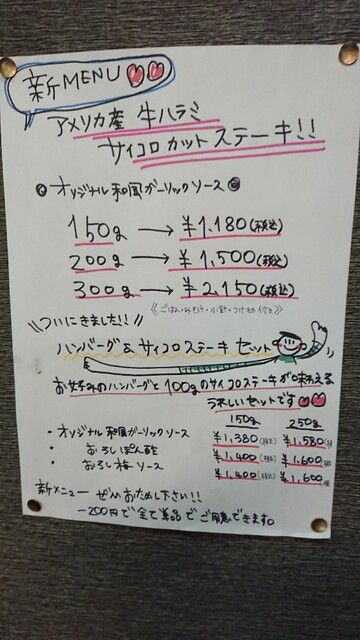 新MENU
アメリカ産 牛ハラミ
サイコロカットステーキ!!
オリジナル和風ガーリックソース
150g → ¥1,180(税込)
200g → ¥1,500(税込)
300g → ¥2,150(税込)
《ごはん・みそ汁・小針・つけもの付き》
\\ついにきました!!//
ハンバーグ&サイコロステーキセット
お好みのハンバーグと100gのサイコロステーキが味わえる
うれしいセットです
150g 250g
・オリジナル和風ガーリックソース ¥1,380(税込) ¥1,580(税
・おろしぽん酢 ¥1,400(税込) ¥1,600(税
・おろし梅ソース ¥1,400(税込) ¥1,600(税
新メニュー ぜひおためし下さい!!
-200円で全て単品でご用意できます。